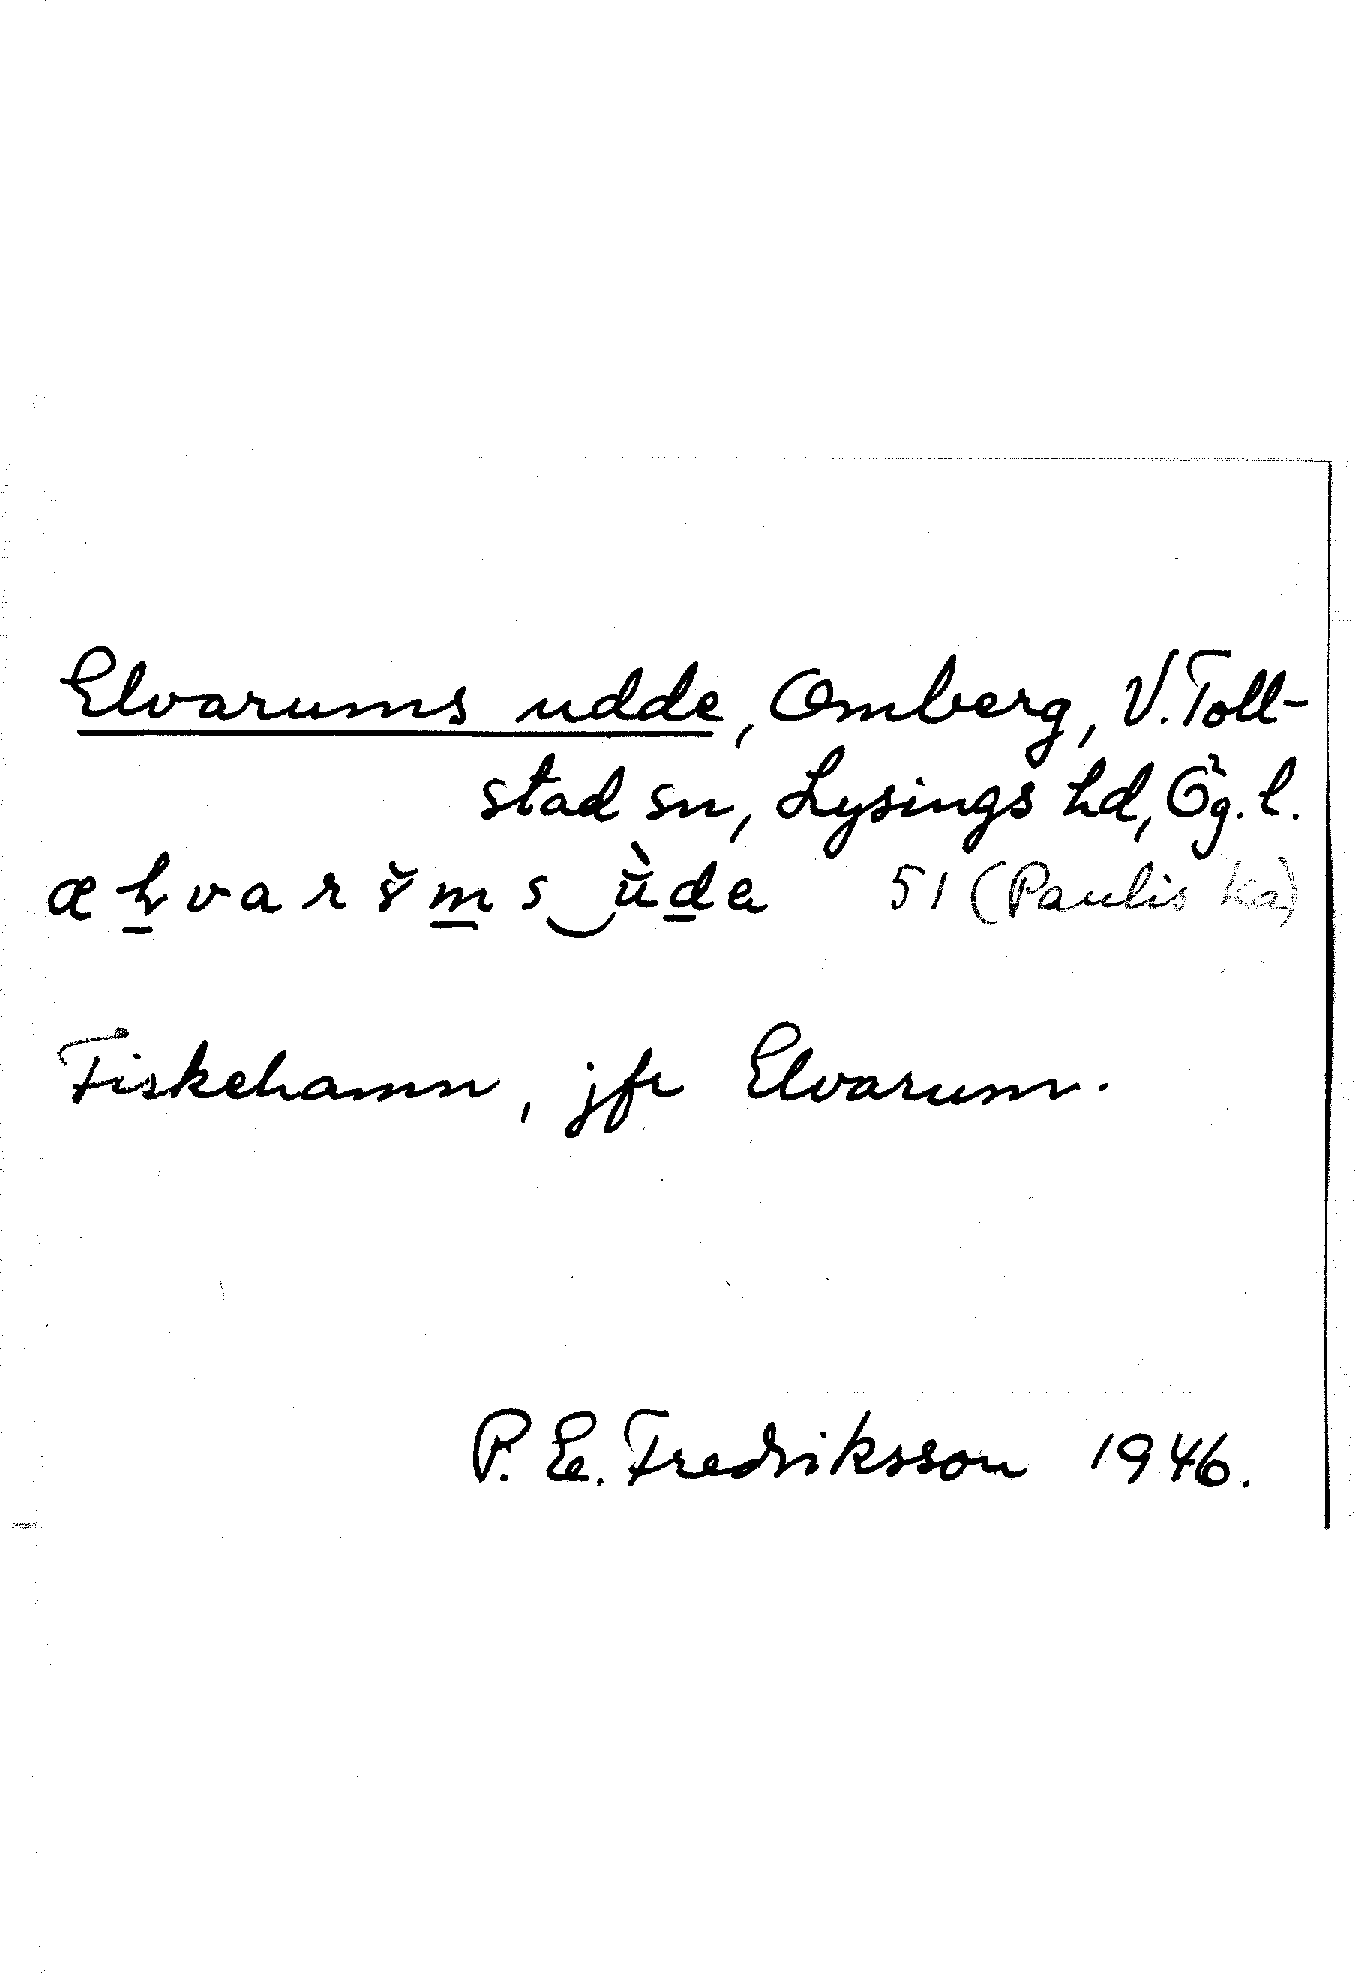 Elvarums udde, Omberg, V. Toll-
stad sn, Lysings hd, Ög. l.
æḻvarv̌m̱s‿ùḏa 51 (Paulis ka)
Fiskehamn, jfr Elvarum.
P. E. Fredriksson 1946.